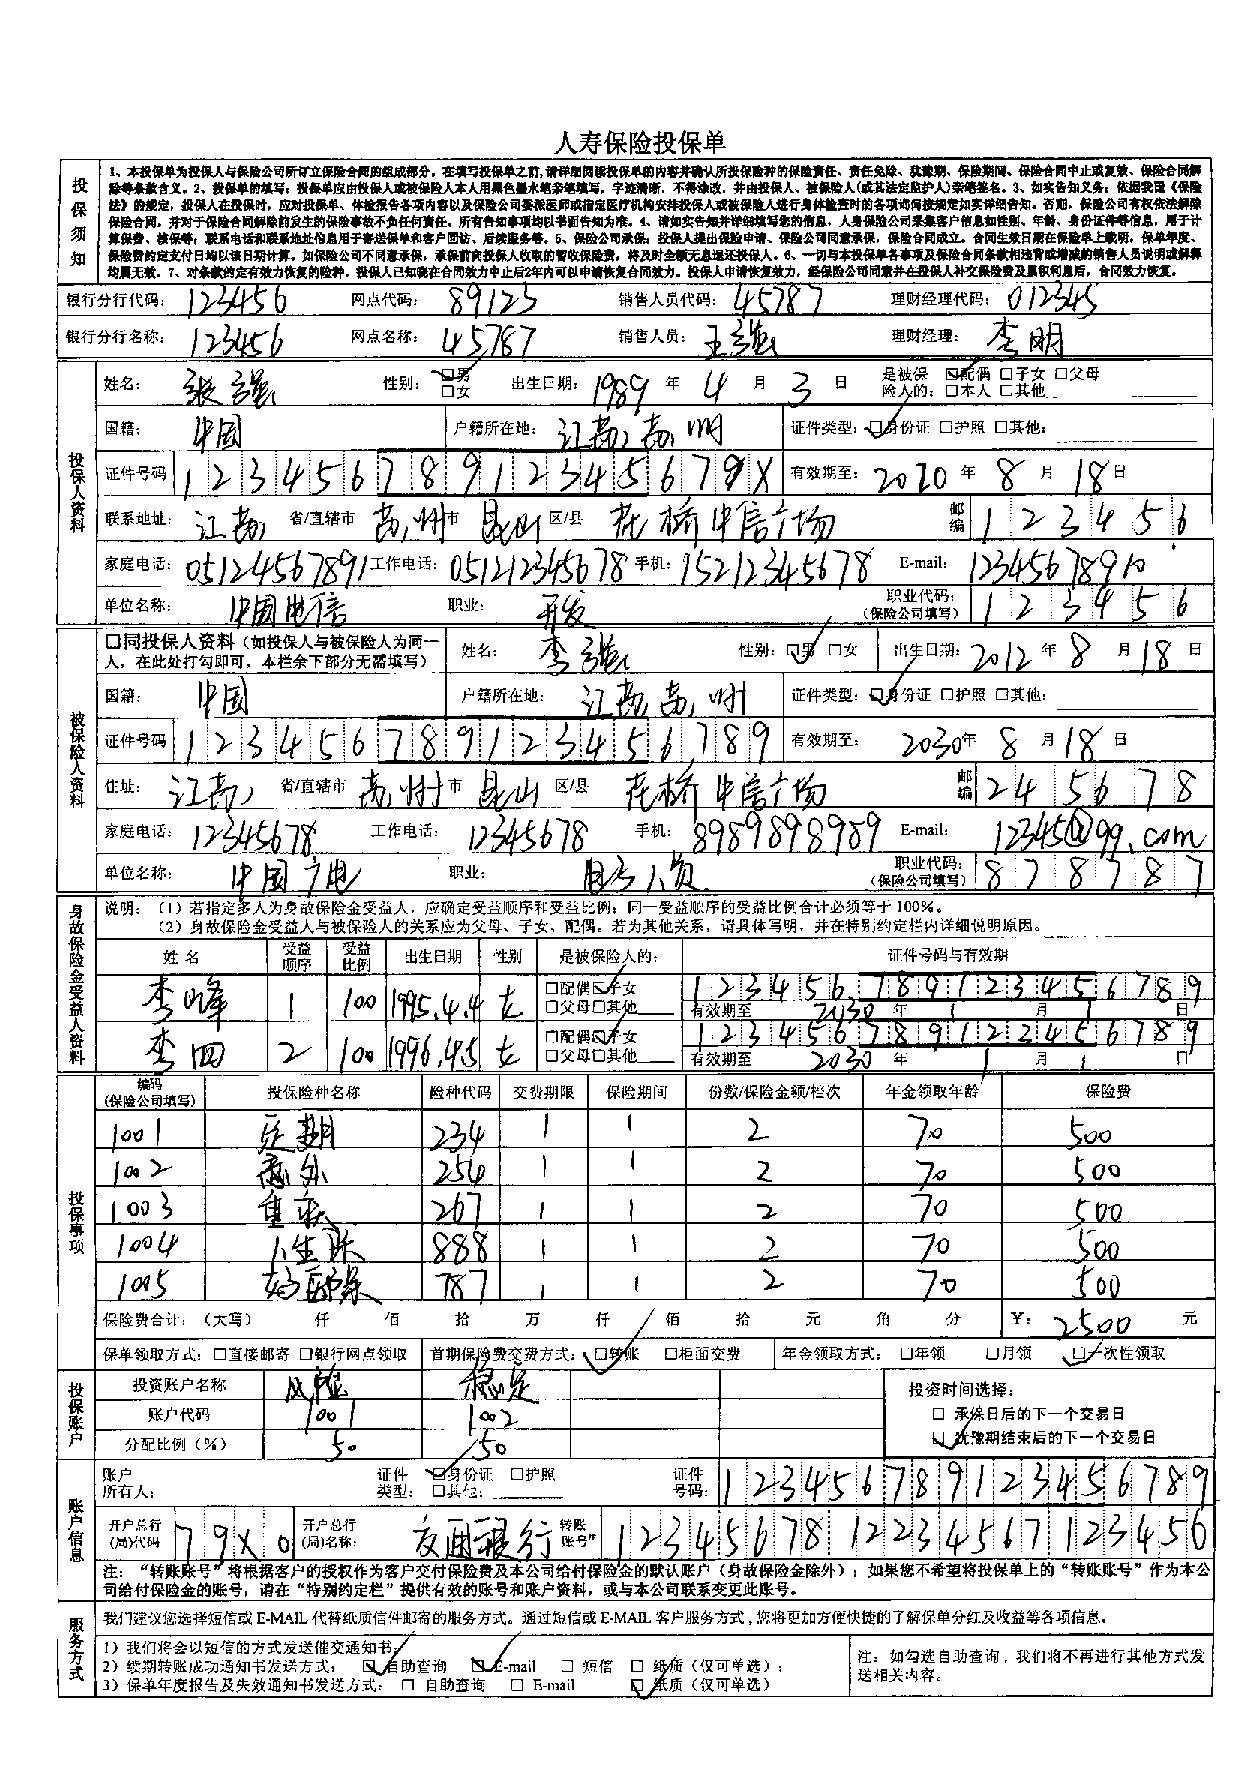 人寿保险投保单
投保须知
1、本投保单为投保人与保险公司所订立保险合同的组成部分。在填写投保单之前,请详细阅读投保单的内容并确认所投保险种的保险责任、责任免除、犹豫期、保险期间、保险合同中止或复效、保险合同解
除等条款含义。2、投保单的填写:投保单应由投保人或被保险人本人用黑色墨水笔亲笔填写,字迹清晰,不得涂改,并由投保人、被保险人(或其法定监护人)亲笔签名。3、如实告知义务:依据我国《保险
法》的规定,投保人在投保时,应对投保单、体检报告各项内容以及保险公司委派医师或指定医疗机构安排投保人或被保险人进行身体检查时的各项询问按规定如实详细告知。否则,保险公司有权依法解除
保险合同,并对于保险合同解除前发生的保险事故不负任何责任。所有告知事项均以书面告知为准。4、请如实告知并详细填写您的信息,人身保险公司采集客户信息如性别、年龄、身份证件等信息,用于计
算保费、核保等;联系电话和联系地址信息用于寄送保单和客户回访、后续服务等。5、保险公司承保:投保人提出保险申请、保险公司同意承保,保险合同成立。合同生效日期在保险单上载明,保单年度、
保险费约定支付日均以该日期计算。如保险公司不同意承保,承保前向投保人收取的暂收保险费,将及时全额无息退还投保人。6、一切与本投保单各事项及保险合同条款相违背或增减的销售人员说明或解释
均属无效。7、对条款约定有效力恢复的险种,投保人已知晓在合同效力中止后2年内可以申请恢复合同效力。投保人申请恢复效力,经保险公司同意并在投保人补交保险费及累积利息后,合同效力恢复。
银行分行代码: 123456 网点代码: 89123 销售人员代码: 45787 理财经理代码: 012345
银行分行名称: 123456 网点名称: 45787 销售人员: 王强 理财经理: 李明
投保人资料
姓名: 张强 性别: □男 □女 出生日期: 1989 年 4 月 3 日 是被保险人的: □配偶 □子女 □父母 □本人 □其他
国籍: 中国 户籍所在地: 江苏苏州 证件类型: □身份证 □护照 □其他:
证件号码 12345678912345679X 有效期至: 2020 年 8 月 18 日
联系地址: 江苏 省/直辖市 苏州 市 昆山 区/县 花桥中信广场 邮编 123456
家庭电话: 05124567891 工作电话: 051212345678 手机: 15212345678 E-mail: 12345678910
单位名称: 中国电信 职业: 开发 职业代码: (保险公司填写) 123456
被保险人资料
□同投保人资料(如投保人与被保险人为同一人,在此处打勾即可,本栏余下部分无需填写) 姓名: 李强 性别: □男 □女 出生日期: 2012 年 8 月 18 日
国籍: 中国 户籍所在地: 江苏苏州 证件类型: □身份证 □护照 □其他:
证件号码 123456789123456789 有效期至: 2030 年 8 月 18 日
住址: 江苏 省/直辖市 苏州 市 昆山 区/县 花桥中信广场 邮编 245678
家庭电话: 12345678 工作电话: 12345678 手机: 8989898989 E-mail: 12345@99.com
单位名称: 中国广电 职业: 职业代码: (保险公司填写) 878787
身故保险金受益人资料
说明:(1)若指定多人为身故保险金受益人,应确定受益顺序和受益比例;同一受益顺序的受益比例合计必须等于100%。
(2)身故保险金受益人与被保险人的关系应为父母、子女、配偶。若为其他关系,请具体写明,并在特别约定栏内详细说明原因。
姓名 受益顺序 受益比例 出生日期 性别 是被保险人的: 证件号码与有效期
李峰 1 100 1995.4.4 女 □配偶□子女 □父母□其他 123456789123456789
有效期至 2030 年 1 月 1 日
李四 2 100 1996.4.5 女 □配偶□子女 □父母□其他 123456789123456789
有效期至 2030 年 1 月 1 日
投保事项
编码(保险公司填写) 投保险种名称 险种代码 交费期限 保险期间 份数/保险金额/档次 年金领取年龄 保险费
1001 定期 234 1 1 2 70 500
1002 意外 254 1 1 2 70 500
1003 重疾 267 1 1 2 70 500
1004 888 1 1 2 70 500
1005 787 1 1 2 70 500
保险费合计:(大写) 仟 佰 拾 万 仟 佰 拾 元 角 分 ¥: 2500 元
保单领取方式: □直接邮寄 □银行网点领取 首期保险费交费方式: □转账 □柜面交费 年金领取方式: □年领 □月领 □一次性领取
投保账户
投资账户名称 风险 稳定 投资时间选择:
账户代码 1001 1002 □ 承保日后的下一个交易日
分配比例(%) 50 50 □ 犹豫期结束后的下一个交易日
账户信息
账户所有人: 证件类型: □身份证 □护照 □其他: 证件号码: 123456789123456789
开户总行(局)代码 79X0 开户总行(局)名称: 交通银行 转账账号" 12345678 12234567 123456
注:"转账账号"将根据客户的授权作为客户交付保险费及本公司给付保险金的默认账户(身故保险金除外);如果您不希望将投保单上的"转账账号"作为本公
司给付保险金的账号,请在"特别约定栏"提供有效的账号和账户资料,或与本公司联系变更此账号。
服务方式
我们建议您选择短信或 E-MAIL 代替纸质信件邮寄的服务方式。通过短信或 E-MAIL 客户服务方式,您将更加方便快捷的了解保单分红及收益等各项信息。
1)我们将会以短信的方式发送催交通知书
2)续期转账成功通知书发送方式: □ 自助查询 □ E-mail □ 短信 □ 纸质(仅可单选);
3)保单年度报告及失效通知书发送方式: □ 自助查询 □ E-mail □ 纸质(仅可单选)
注:如勾选自助查询,我们将不再进行其他方式发
送相关内容。